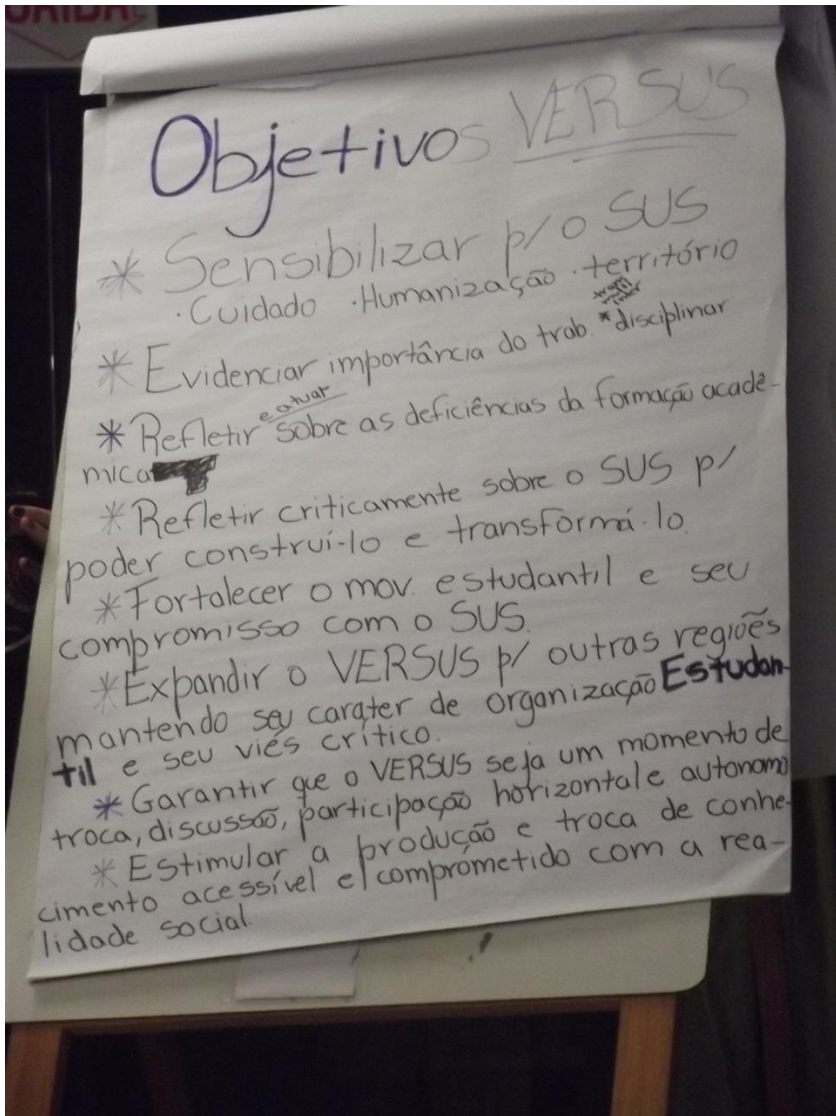 SAIDA
Objetivos VERSUS
* Sensibilizar p/ o SUS
· Cuidado · Humanização · território
* Evidenciar importância do trab. *disciplinar
e atuar
* Refletir sobre as deficiências da formação acadê-
mica
* Refletir criticamente sobre o SUS p/
poder construí-lo e transformá-lo.
* Fortalecer o mov. estudantil e seu
compromisso com o SUS.
* Expandir o VERSUS p/ outras regiões
mantendo seu carater de organização Estudan-
til e seu viés crítico.
* Garantir que o VERSUS seja um momento de
troca, discussão, participação horizontal e autonomo
* Estimular a produção e troca de conhe-
cimento acessível e comprometido com a rea-
lidade social.